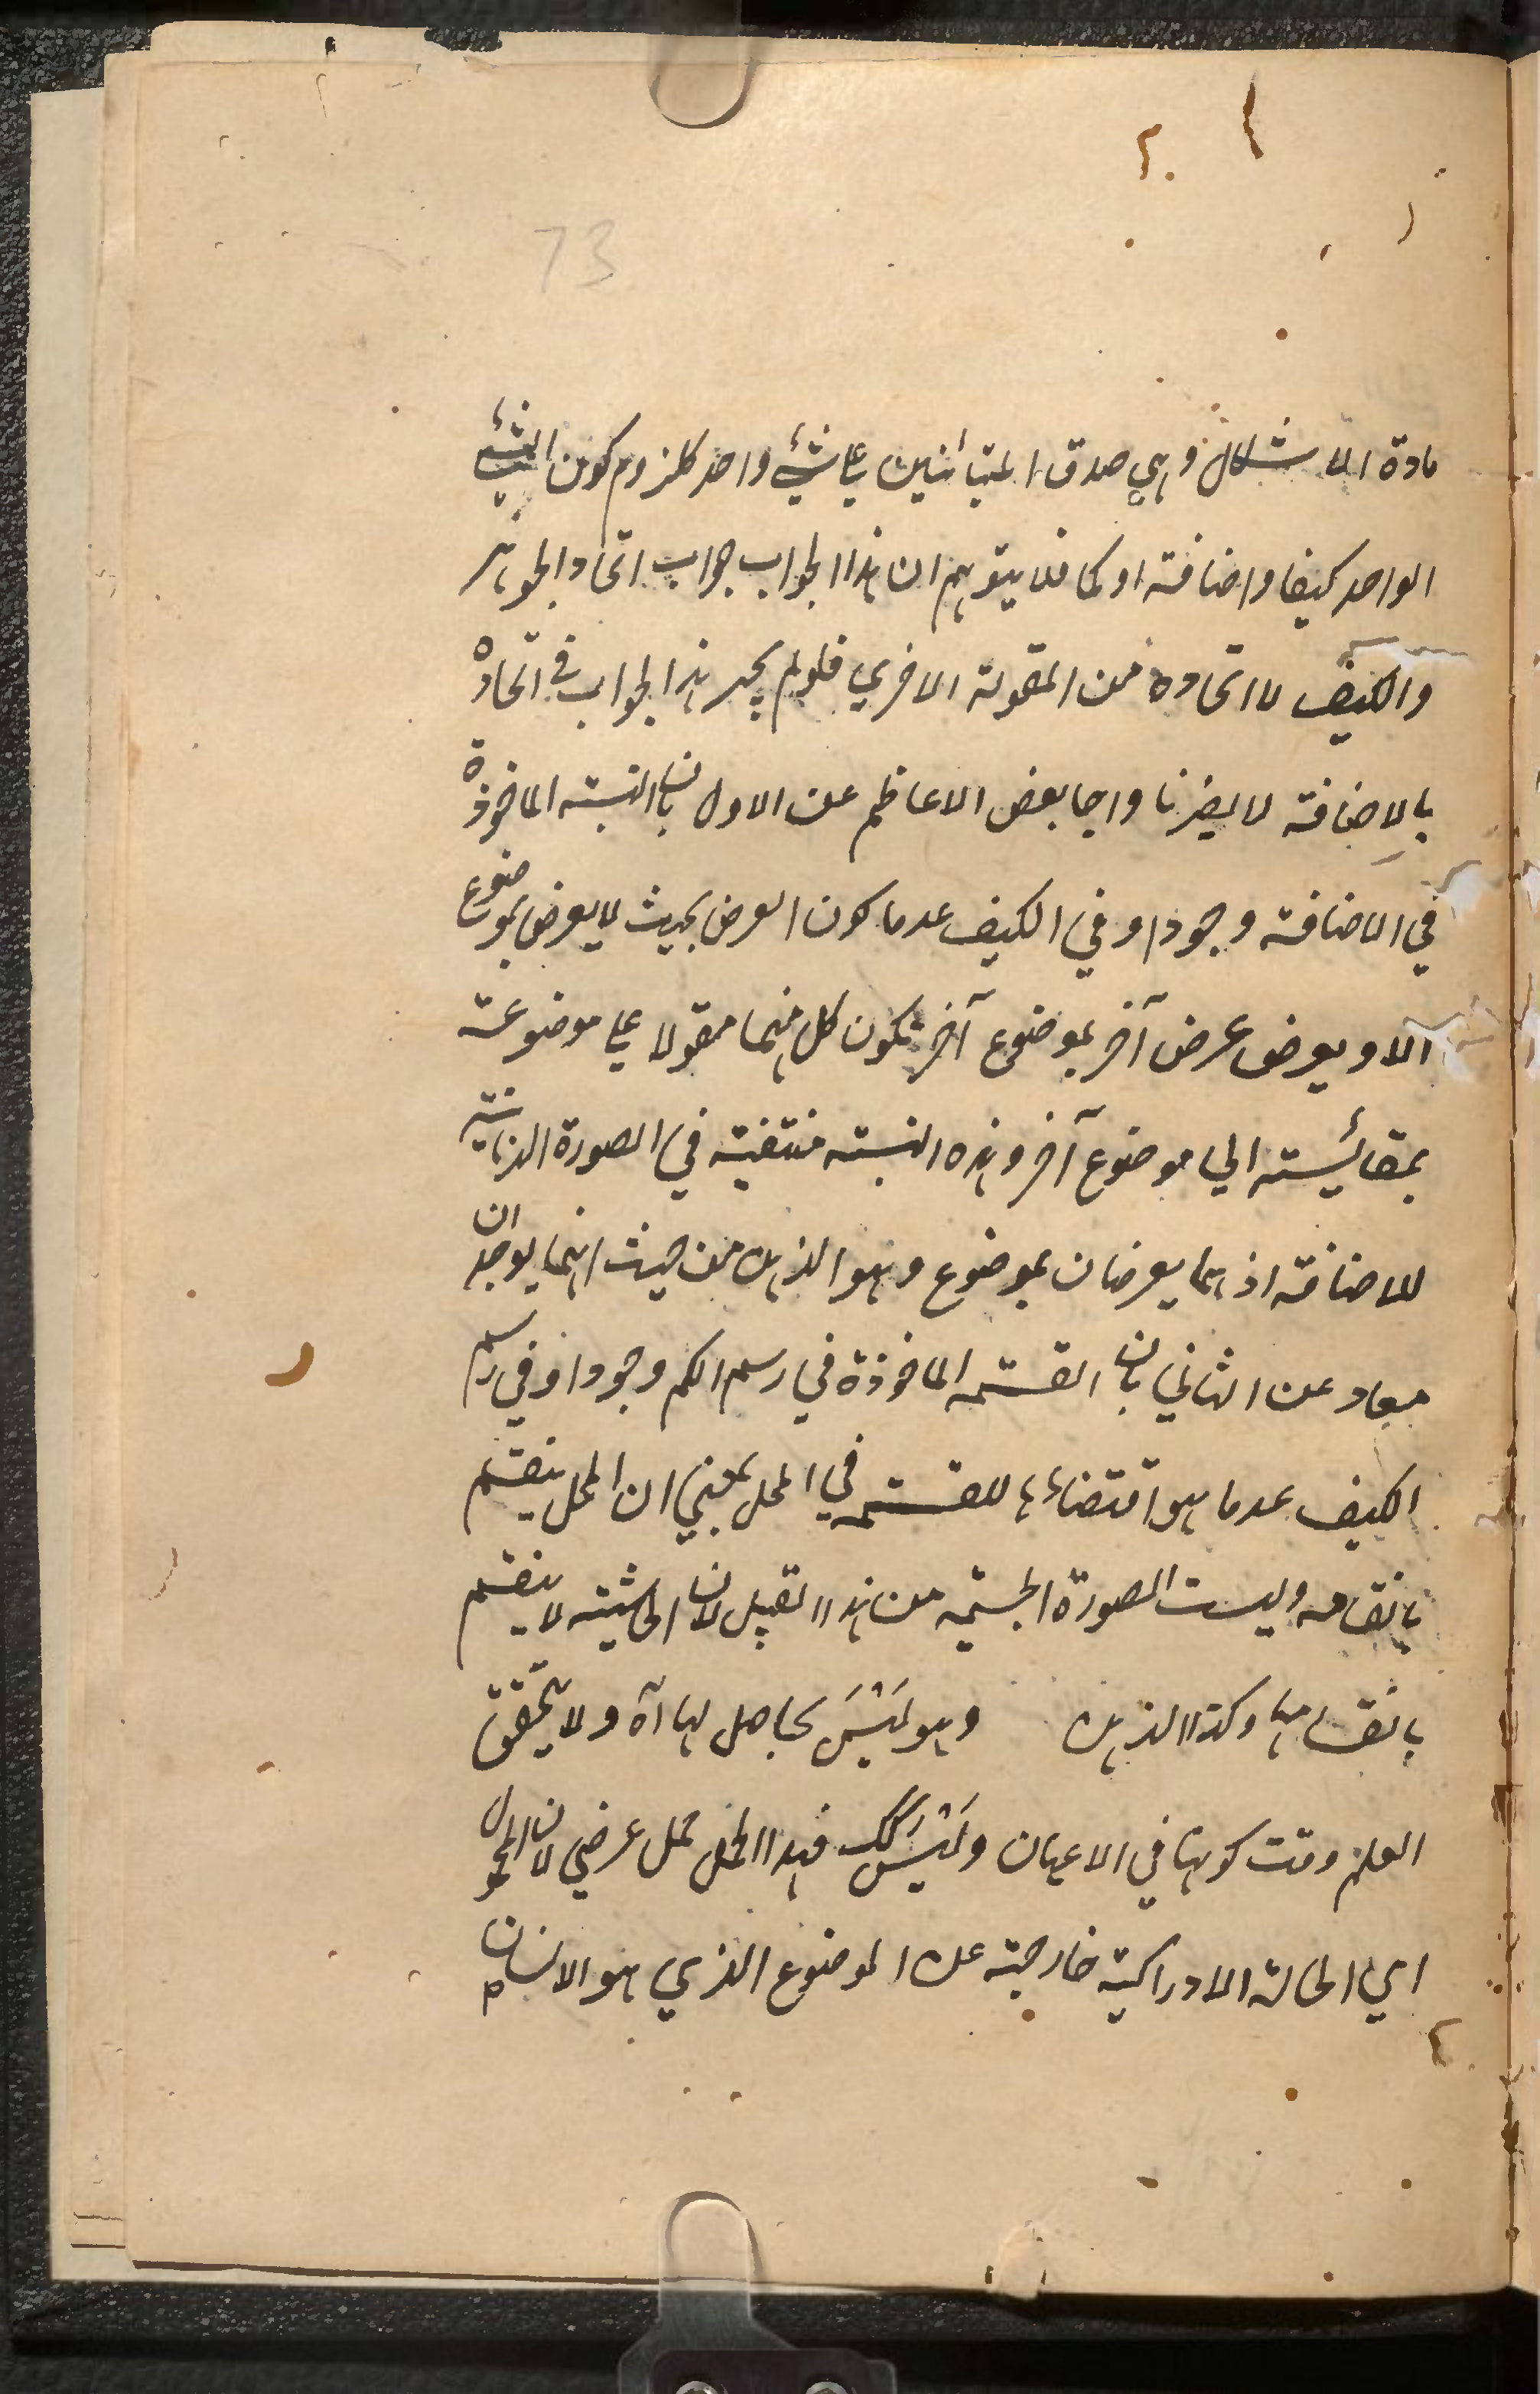 73
مادة الاشكال وهي صدق المتبائنين على شيء واحد كلزوم كون الشيء
الواحد كيفا واضافة او كما فلا يتوهم ان هذا الجواب جواب اتحاد الجوهر
والكيف لا اتحاده من المقولة الاخرى فلو لم يجر هذا الجواب في اتحاده
بالاضافة لا يضرنا واجا بعض الاعاظم عن الاول بان النسبة الماخوذة
في الاضافة وجودا وفي الكيف عدما كون العرض بحيث لا يعرض بموضوع
الا ويعرض عرض آخر بموضوع آخر يكون كل منهما مقولا على موضوعه
بمقائسته الى موضوع آخر وهذه النسبة منتفية في الصورة الذهنية
للاضافة اذ هما يعرضان بموضوع وهو الذهن من حيث انهما يوجدان
معا وعن الثاني بان القسمة الماخوذة في رسم الكم وجودا وفي رسم
الكيف عدما هو اقتضاءها للقسمة في المحل بمعنى ان المحل ينقسم
بانقسامه وليست الصورة الجسمية من هذا القبيل لان الحاشية لا ينقسم
بانقسامها وكذا الذهن وهو لَيْسَ بحاصل لها آه ولا يتحقق
العلم وقت كونها في الاعيان ولَيْسَ كك فهذا الحمل حمل عرضي لان المحمول
اي الحالة الادراكية خارجة عن الموضوع الذي هو الانسان